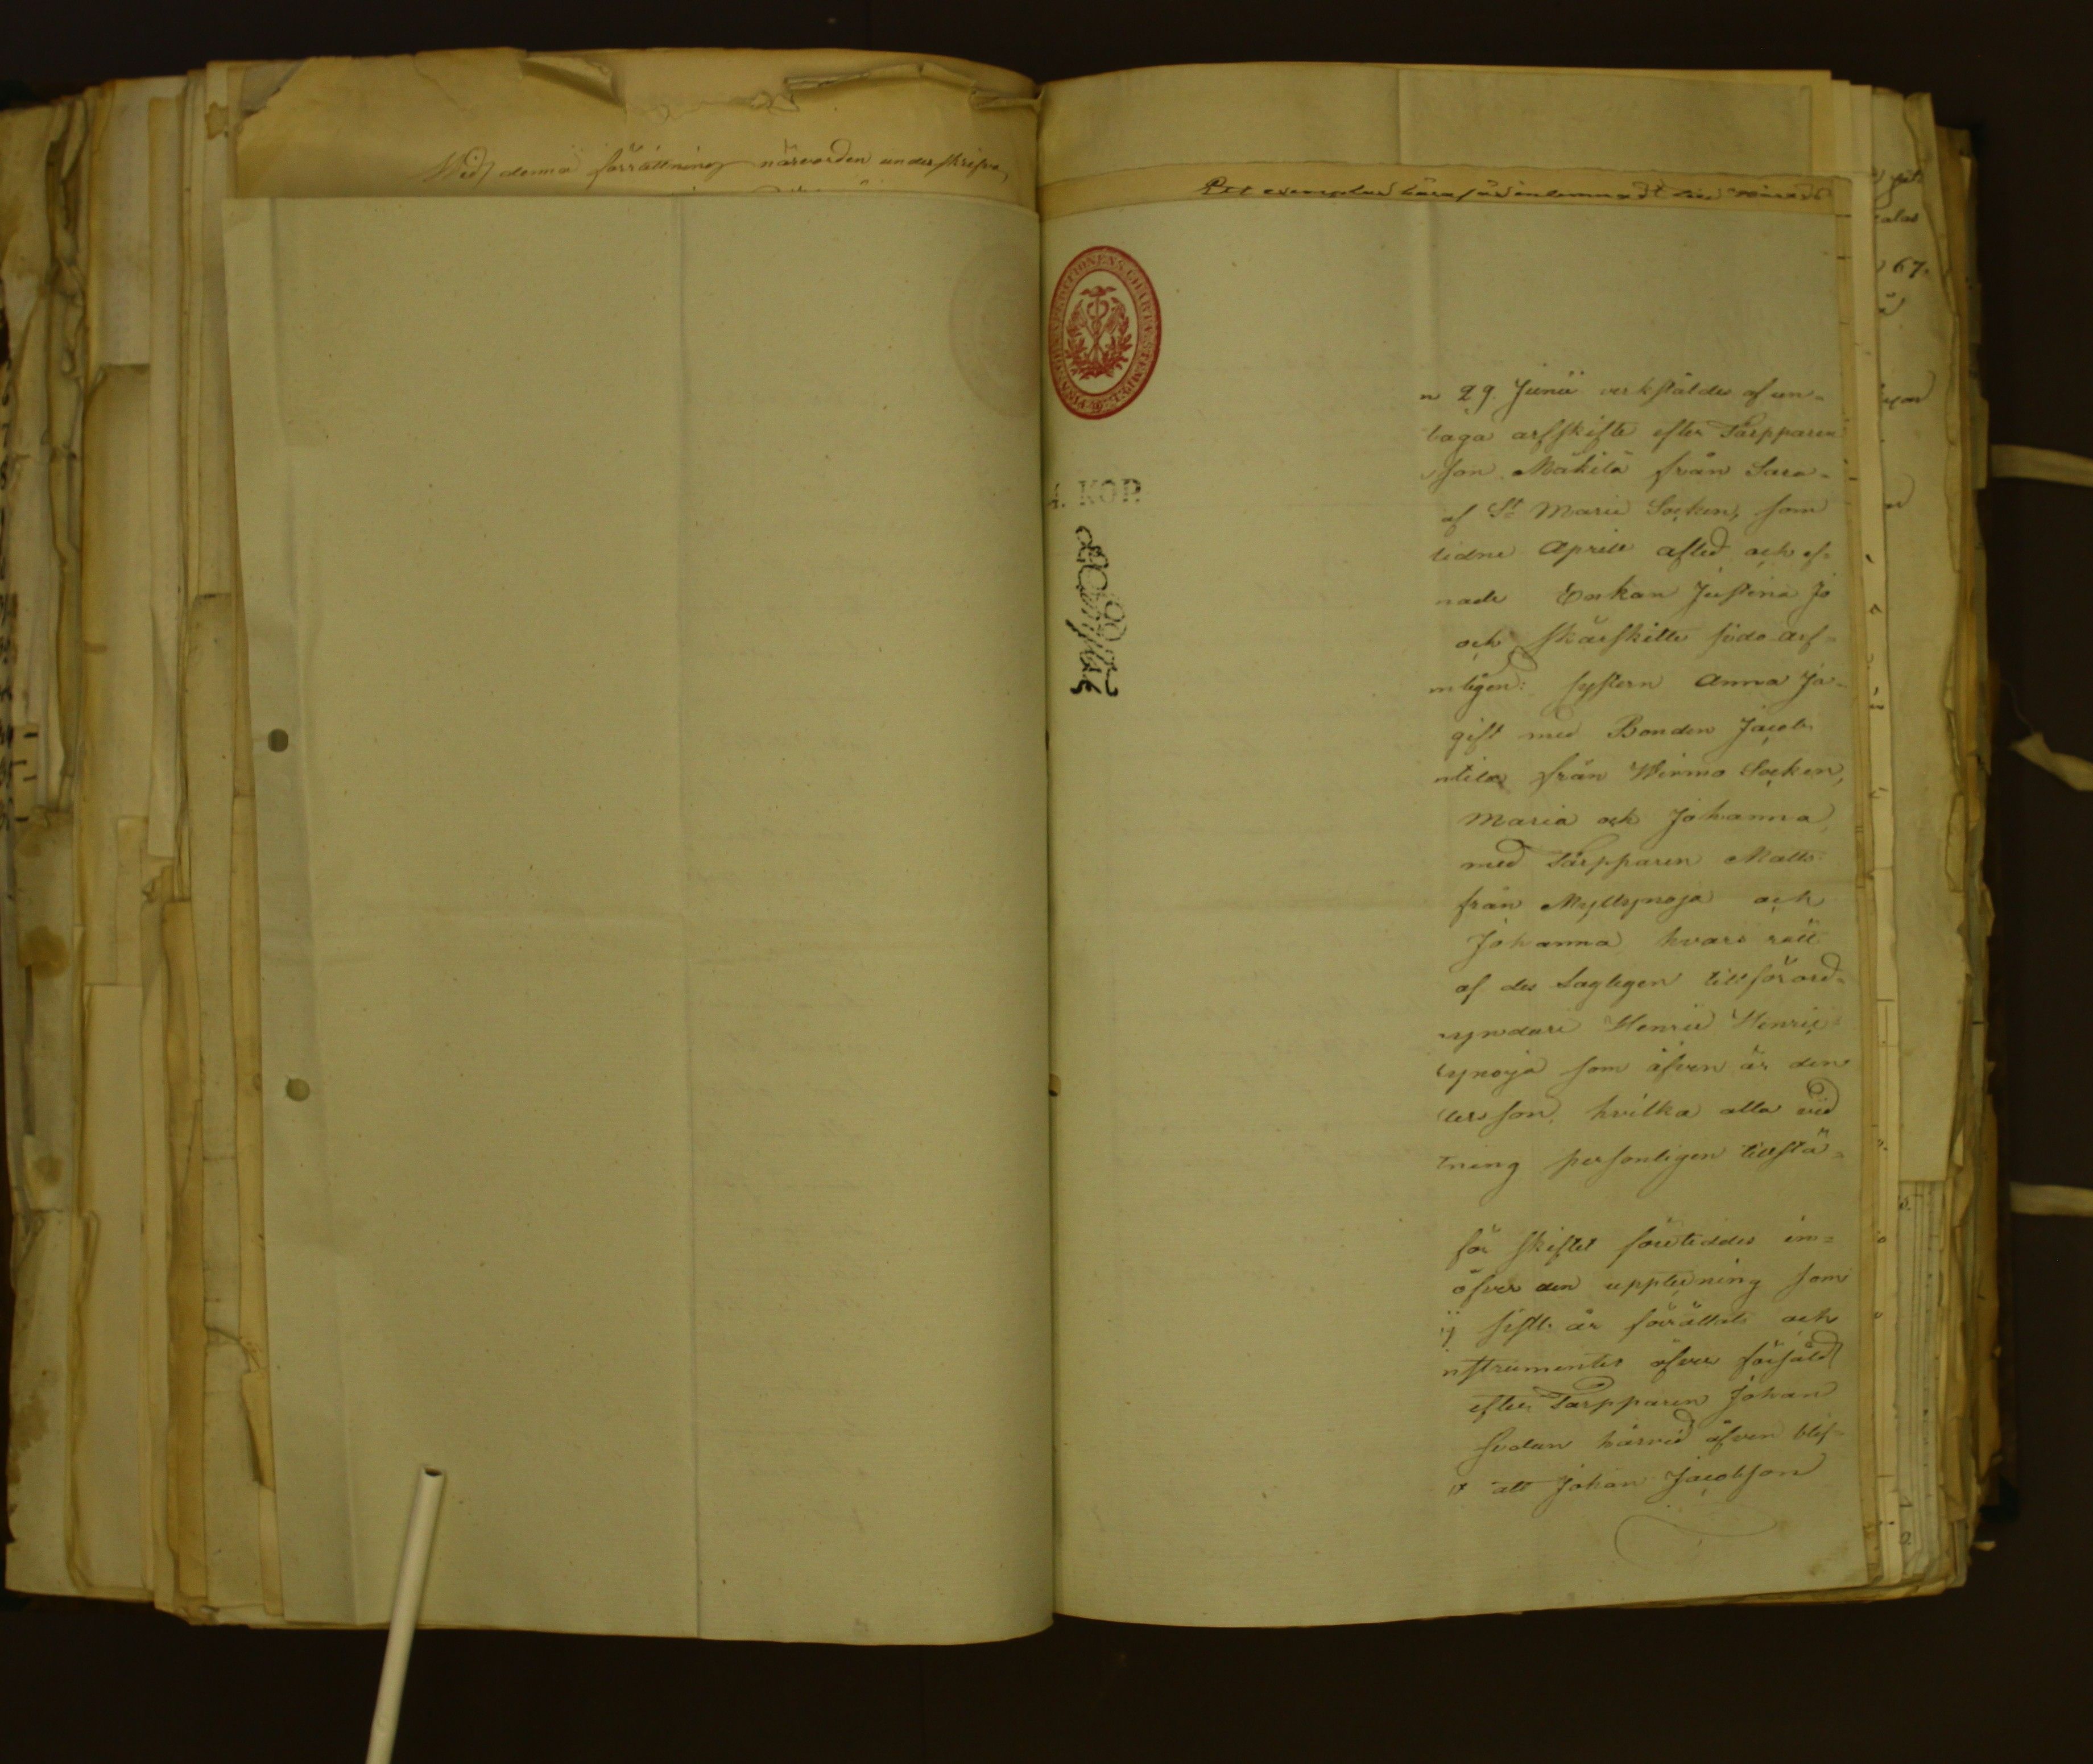 Wid denna förrättning närvarden underskrifva,
Ett exemplar häraf är inlemnadt till
4. KOP.
n 29. Junii verkstäldes af un-
taga arfskifte efter Torpparen
son Mäkilä från Sara-
af St Marie Socken, som
lidne Aprill afled och ef-
nade Enkan Justina Jo
och Särskilte sido arf-
mligen: systern Anna Ja-
gift med Bonden Jacob
ntila från Wirmo Socken,
Maria och Johanna
med Torpparen Matts
från Myllynoja och
Johanna hvars rätt
af des lagligen tillförord-
yndare Henric Henric
lynoja som äfven är den
ersson, hvilka alla vid
tning personligen tillstä-
för skiftet företeddes in-
öfver den uppteckning som
ij sistl. är förrättats och
nstrumenter öfver försåld
efter Torpparen Johan
sedan härvid äfven blif-
t att Johan Jacobson
67.